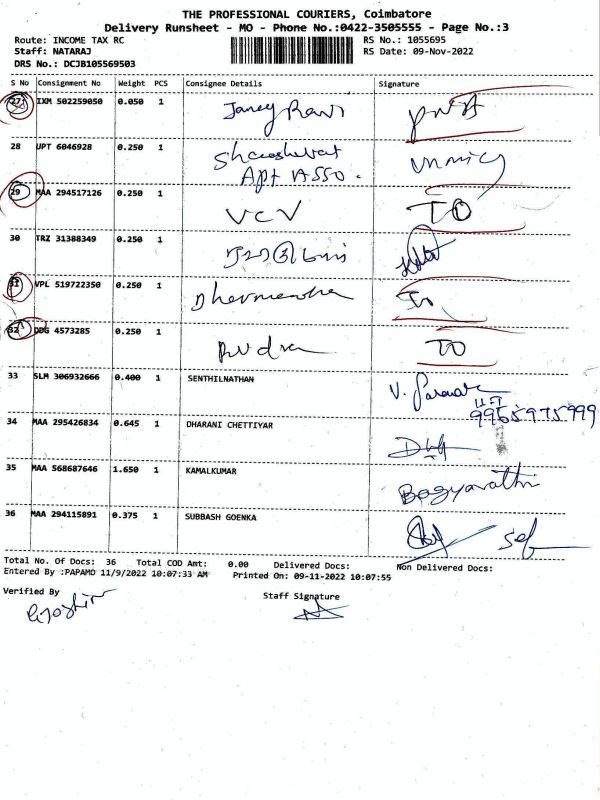 THE PROFESSIONAL COURIERS, Coimbatore
Delivery Runsheet - MO - Phone No.:0422-3505555 - Page No.:3
Route: INCOME TAX RC
RS No.: 1055695
Staff: NATARAJ
RS Date: 09-Nov-2022
DRS No.: DCJB105569503
S No Consignment No Weight PCS Consignee Details Signature
27 IXM 502259050 0.050 1
28 UPT 6046928 0.250 1
Apt Asso.
29 MAA 294517126 0.250 1 VCV TO
30 TRZ 31388349 0.250 1
31 VPL 519722350 0.250 1 Dhermendra
32 DDG 4573285 0.250 1 Rudra TO
33 SLM 306932666 0.400 1 SENTHILNATHAN
9965975999
34 MAA 295426834 0.645 1 DHARANI CHETTIYAR
35 MAA 568687646 1.650 1 KAMALKUMAR Bagyarathi
36 MAA 294115891 0.375 1 SUBBASH GOENKA Self
Total No. Of Docs: 36 Total COD Amt: 0.00 Delivered Docs: Non Delivered Docs:
Entered By :PAPAMO 11/9/2022 10:07:33 AM Printed On: 09-11-2022 10:07:55
Verified By
Staff Signature